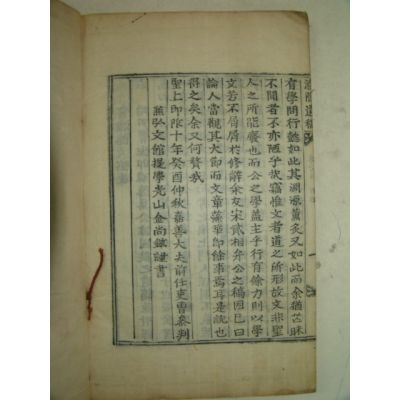 有學問行懿如此其淵源薰炙又如此而余猶芒昧
不聞者不亦陋乎哉竊惟文者道之所形故文非聖
人之所能廢也而公之學蓋主乎行有餘力則以學
文若不屑屑於修辭余友宋貳相弁公之稿固已曰
論人當觀其大節而文章藻華即餘事焉耳是說也
得之矣余又何贅哉
聖上卽阼十年癸酉仲秋嘉善大夫前任吏曹參判
兼弘文館提學光山金尚鉉謹書